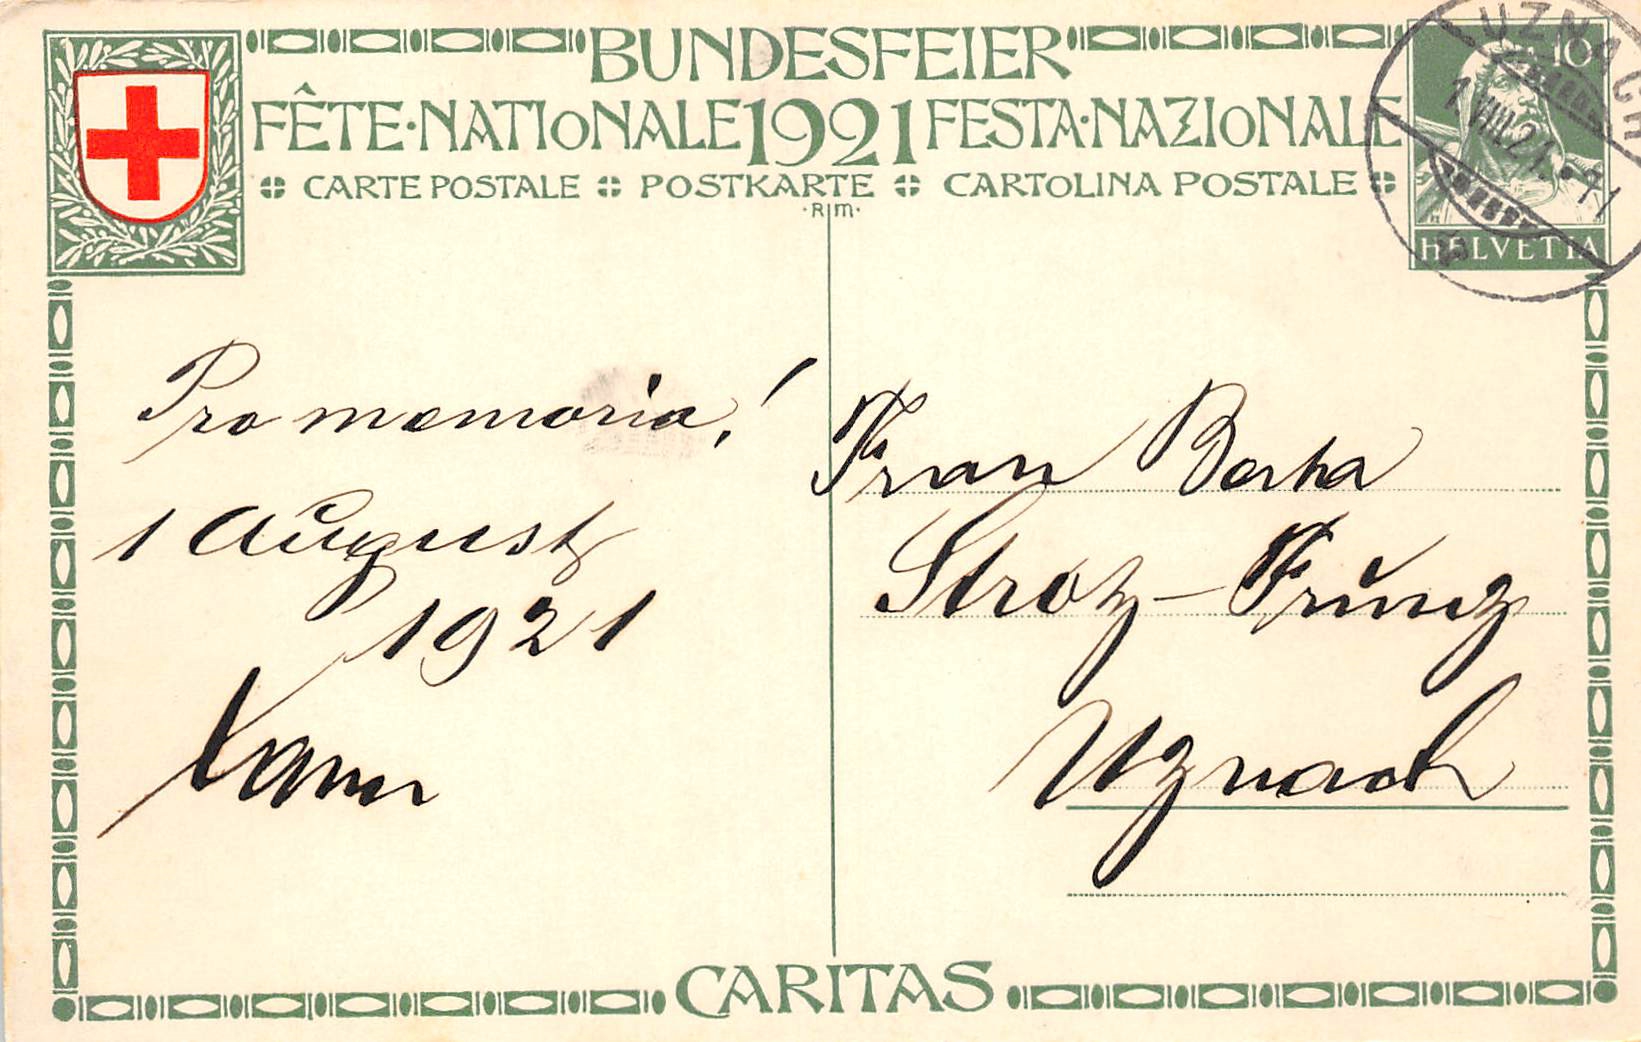 BUNDESFEIER
FÊTE·NATIONALE 1921 FESTA·NAZIONALE
CARTE POSTALE POSTKARTE CARTOLINA POSTALE
·R|M·
10
HELVETIA
UZNACH
1.VIII.21.
Pro memoria!
1 August
1921
Frau Berta
Stroz-Frünz
Uznach
CARITAS